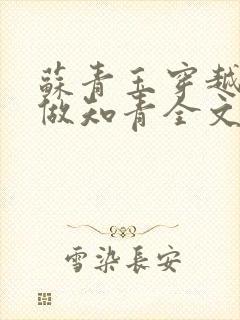 蘇青玉穿越
做知青全文
雪染長安